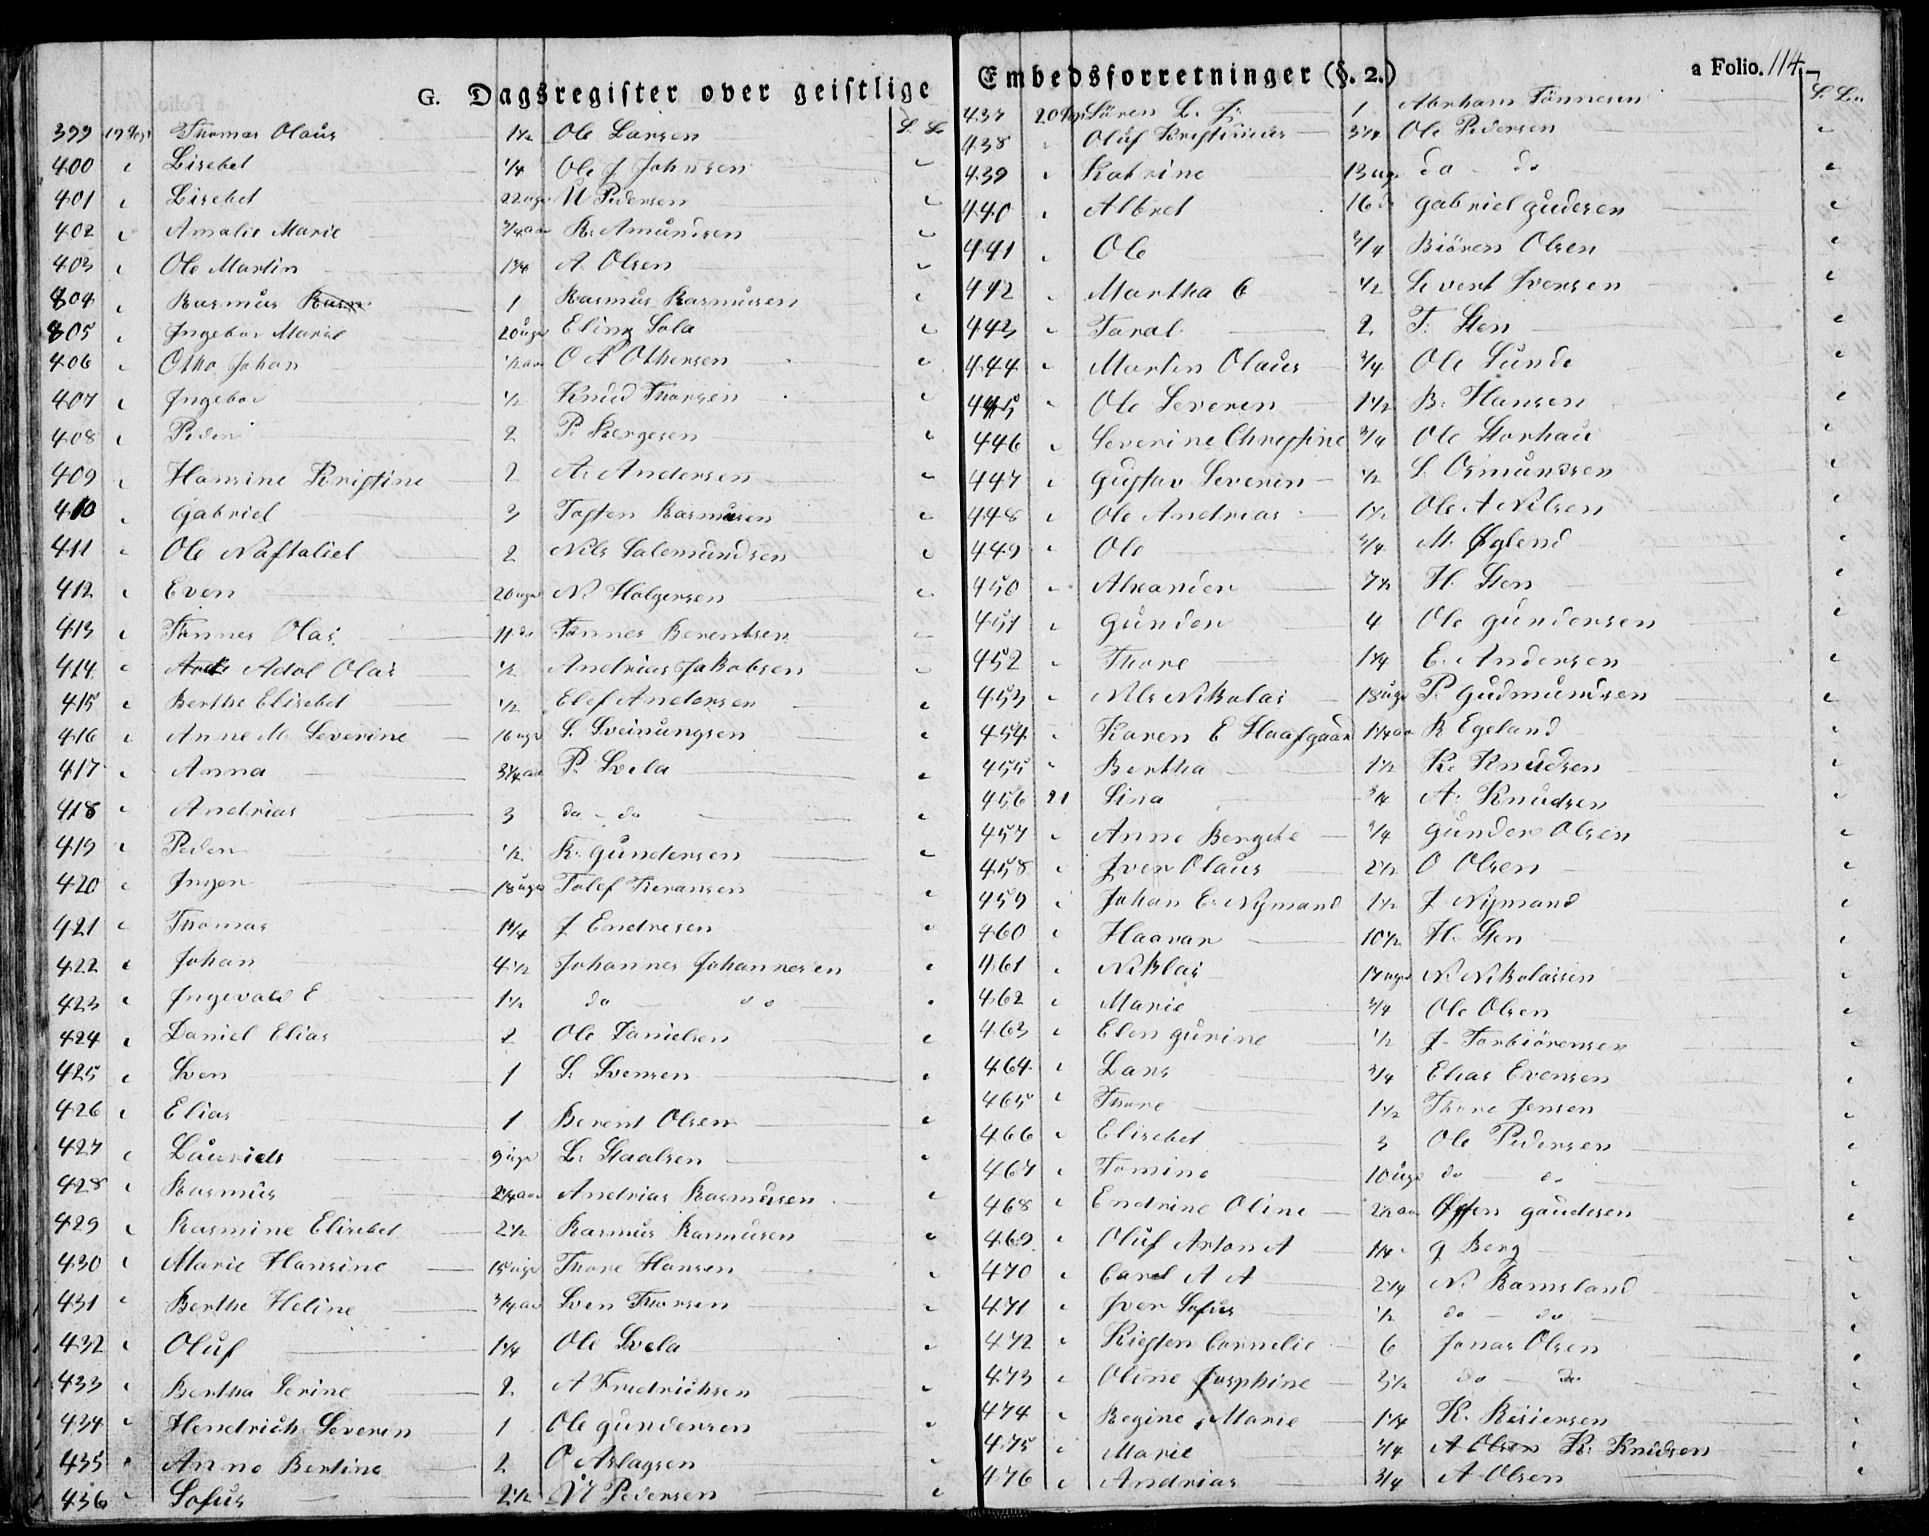 G. Dagsregister over geistlige
399 19 Thomas Olaus 1 1/2 Ole Larsen
400 " Lisebet 1/4 Ole J Johnsen "
401 " Lisebet 22 uger M Pedersen "
402 " Amalie Marie 3/4 aar R. Amundsen "
403 " Ole Martin 1 3/4 A. Olsen "
804 " Rasmus 1 Rasmus Rasmussen "
805 " Ingebor Marie 20 uger Eling Sola "
406 " Otho Johan 1/2 aar O A Othersen "
407 " Ingebor 1/2 Knud Thorsen "
408 " Peder 2 P. Bergesen "
409 " Hansine Kristine 2 A. Andersen "
410 " Gabriel 3 Tosten Rasmusen "
411 " Ole Naftaliel 2 Nils Salemundsen "
412 " Even 20 uger N. Holgersen "
413 " Tønnes Olai 11 do Tønnes Berentsen "
414 " Adol Olai 1/2 Andrias Jakobsen "
415 " Berthe Elisebet 1/2 Elef Andersen "
416 " Anne M. Severine 16 uger S. Sveinungsen "
417 " Anna 3 1/4 aar P. Svela "
418 " Andrias 3 do - do "
419 " Peder 1/2 K. Gundersen "
420 " Inger 18 uger Tolef "
421 " Thomas 1 3/4 J Endresen "
422 " Johan 4 1/2 Johannes Johannesen "
423 " Ingevald E 1 1/2 do do "
424 " Daniel Elias 2 Ole Danielsen "
425 " Sven 1 S. Svensen "
426 " Elias 1 Berent Olsen "
427 " Lauriets 9 uger L. Staalsen "
428 " Rasmus 2 1/4 aar Andrias Rasmusen "
429 " Rasmine Elisebet 2 1/2 Rasmus Rasmusen "
430 " Marie Hansine 15 uger Thore Hansen "
431 " Berthe Heline 3/4 aar Sven Thorsen "
432 " Oluf 1 1/4 Ole Svela "
433 " Bertha Serine 2 A Fredrichsen "
434 " Hendrich Severin 1 Ole Gundersen "
435 " Anne Bertine 2 O Aslagsen "
436 " Sofus 2 1/2 M Pedersen "
Embedsforretninger (§. 2.) a Folio. 114
437 20 Sören L. 1 Abraham Tönnesen
438 " Oluf Kristinius 3 1/2 Ole Pedersen "
439 " Katrine 13 uger do do "
440 " Albret 16 do Gabriel Gudesen "
441 " Ole 3/4 Biören Olsen "
442 " Martha C 1/2 Sivert Iversen "
443 " Taral 2 T. Sten "
444 " Martin Olaus 3/4 Ole Lunde "
445 " Ole Severin 1 1/2 B. Hansen "
446 " Severine Christine 3/4 Ole Storhau "
447 " Gustav Severin 1/2 S. Osmundsen "
448 " Ole Andreas 1 1/2 Ole A Nilsen "
449 " Ole 3/4 M. Øglend "
450 " Alexander 7 1/2 H. Sten "
451 " Gunder 4 Ole Gundersen "
452 " Thore 1 1/4 E. Andersen "
453 " Nils Nikolai 18 uger P. Gudmundsen "
454 " Karen E Haafgaar 1 1/4 aar R Egeland "
455 " Bertha 1 1/2 K. Knudsen "
456 21 Sina 3/4 A. Knudsen "
457 " Anne Bergite 3/4 Gunder Olsen "
458 " Iver Olaus 2 1/2 O Olsen "
459 " Johan E. Nymand 1 1/2 J Nymand "
460 " Haavar 10 1/2 H. Sten "
461 " Niklai 17 uger N. Nikolaisen "
462 " Marie 3/4 Ole Olsen "
463 " Elen Gurine 1/2 J. Torbiörensen "
464 " Lars 3/4 Elias Evensen "
465 " Thore 1 1/2 Thore Jensen "
466 " Elisebet 3 Ole Pedersen "
467 " Tomine 10 uger do do "
468 " Endrine Oline 2 1/2 aar Østen Gaudesen "
469 " Oluf Anton A 1 1/4 G Berg "
470 " Carel A A 2 1/4 N. Ramsland "
471 " Iver Sofus 1/2 do - do "
472 " Kisten Cornelie 6 Jonas Olsen "
473 " Oline Josphine 3 1/2 do - do "
474 " Regine Marie 1 1/4 K. "
475 " Marie 3/4 A Olsen K. Knudsen "
476 " Andrias 3/4 A Olsen "